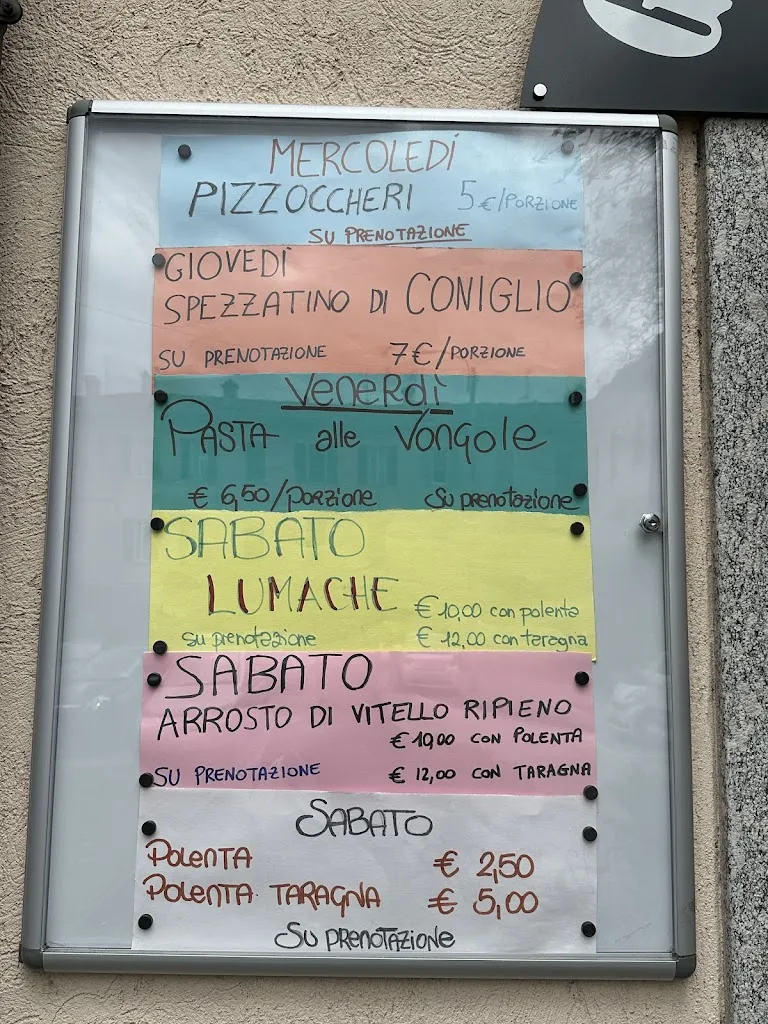 MERCOLEDÌ
PIZZOCCHERI 5€/PORZIONE
SU PRENOTAZIONE
GIOVEDÌ
SPEZZATINO DI CONIGLIO
SU PRENOTAZIONE 7€/PORZIONE
Venerdì
PASTA alle Vongole
€ 6,50/porzione Su prenotazione
SABATO
LUMACHE € 10,00 con polenta
su prenotazione € 12,00 con taragna
SABATO
ARROSTO DI VITELLO RIPIENO
€ 10,00 CON POLENTA
SU PRENOTAZIONE € 12,00 CON TARAGNA
SABATO
POLENTA € 2,50
POLENTA TARAGNA € 5,00
SU PRENOTAZIONE